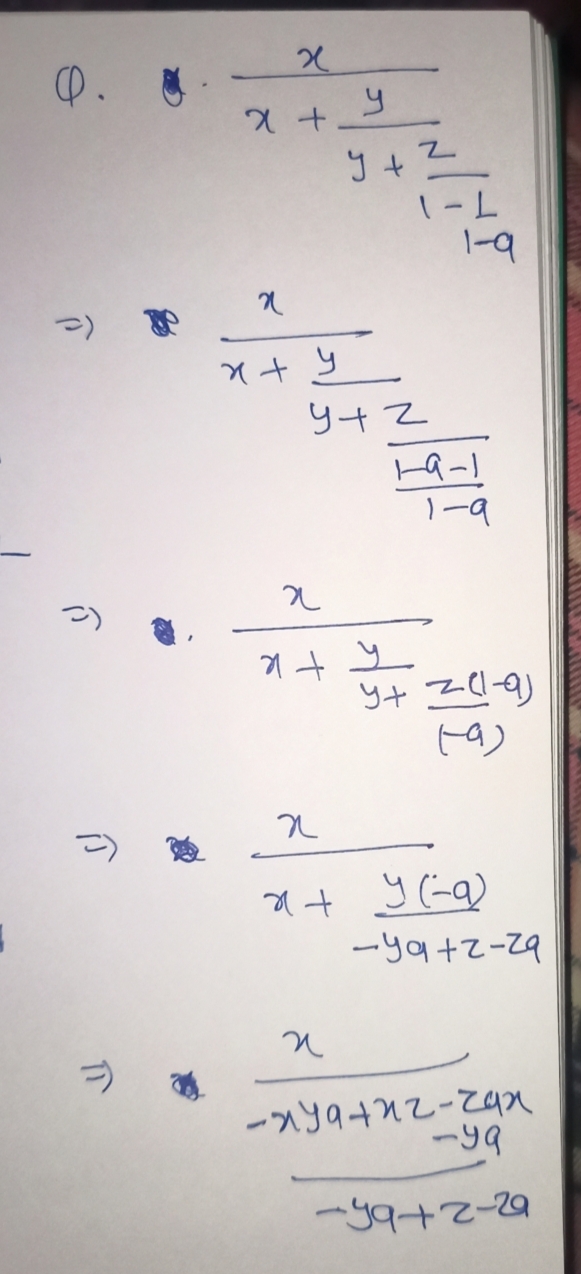 Q. x
x + y
y + z
1 - 1
1-a
=) x
x + y
y + z
1-a-1
1-a
=) x
x + y
y + z(1-a)
(-a)
=) x
x + y(-a)
-ya+z-za
=) x
-xya+zx-zax
-ya
-ya+z-za